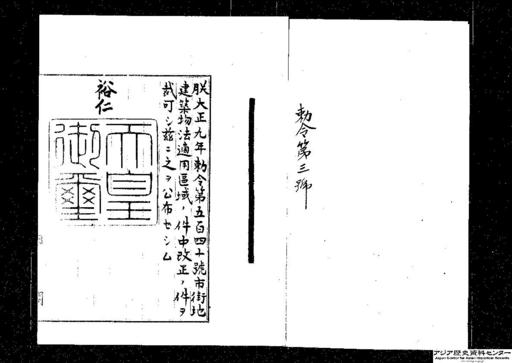 勅令第三號
朕大正九年勅令第五百四十號市街地
建築物法適用區域ノ件中改正ノ件ヲ
裁可シ茲ニ之ヲ公布セシム
裕仁
天皇
御璽
アジア歴史資料センター
Japan Center for Asian Historical Records